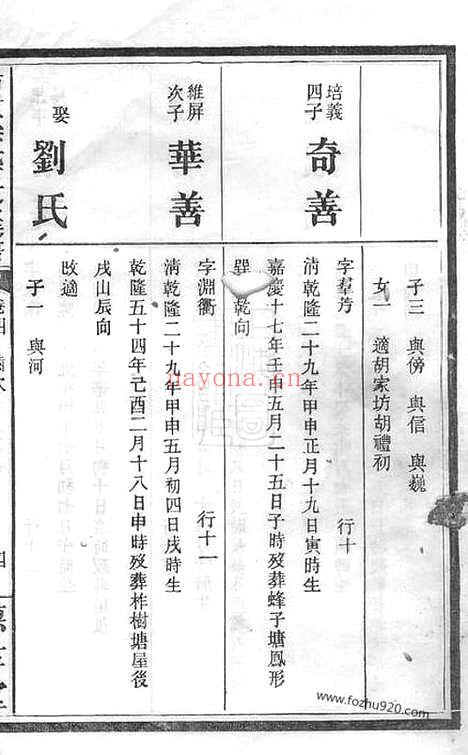 子三 與傍 與信 與巍
女一 適胡家坊胡禮初
培義
四子
奇善
字羣芳 行十
清乾隆二十九年甲申正月十九日寅時生
嘉慶十七年壬申五月二十五日子時歿葬蜂子塘鳳形
巽 乾向
維屏
次子
華善
字淵衢 行十一
清乾隆二十九年甲申五月初四日戌時生
乾隆五十四年己酉二月十八日申時歿葬柞樹塘屋後
戌山辰向
娶
劉氏
改適
子一 與河
卷四
四
nayona.cn
www.fozhu920.com